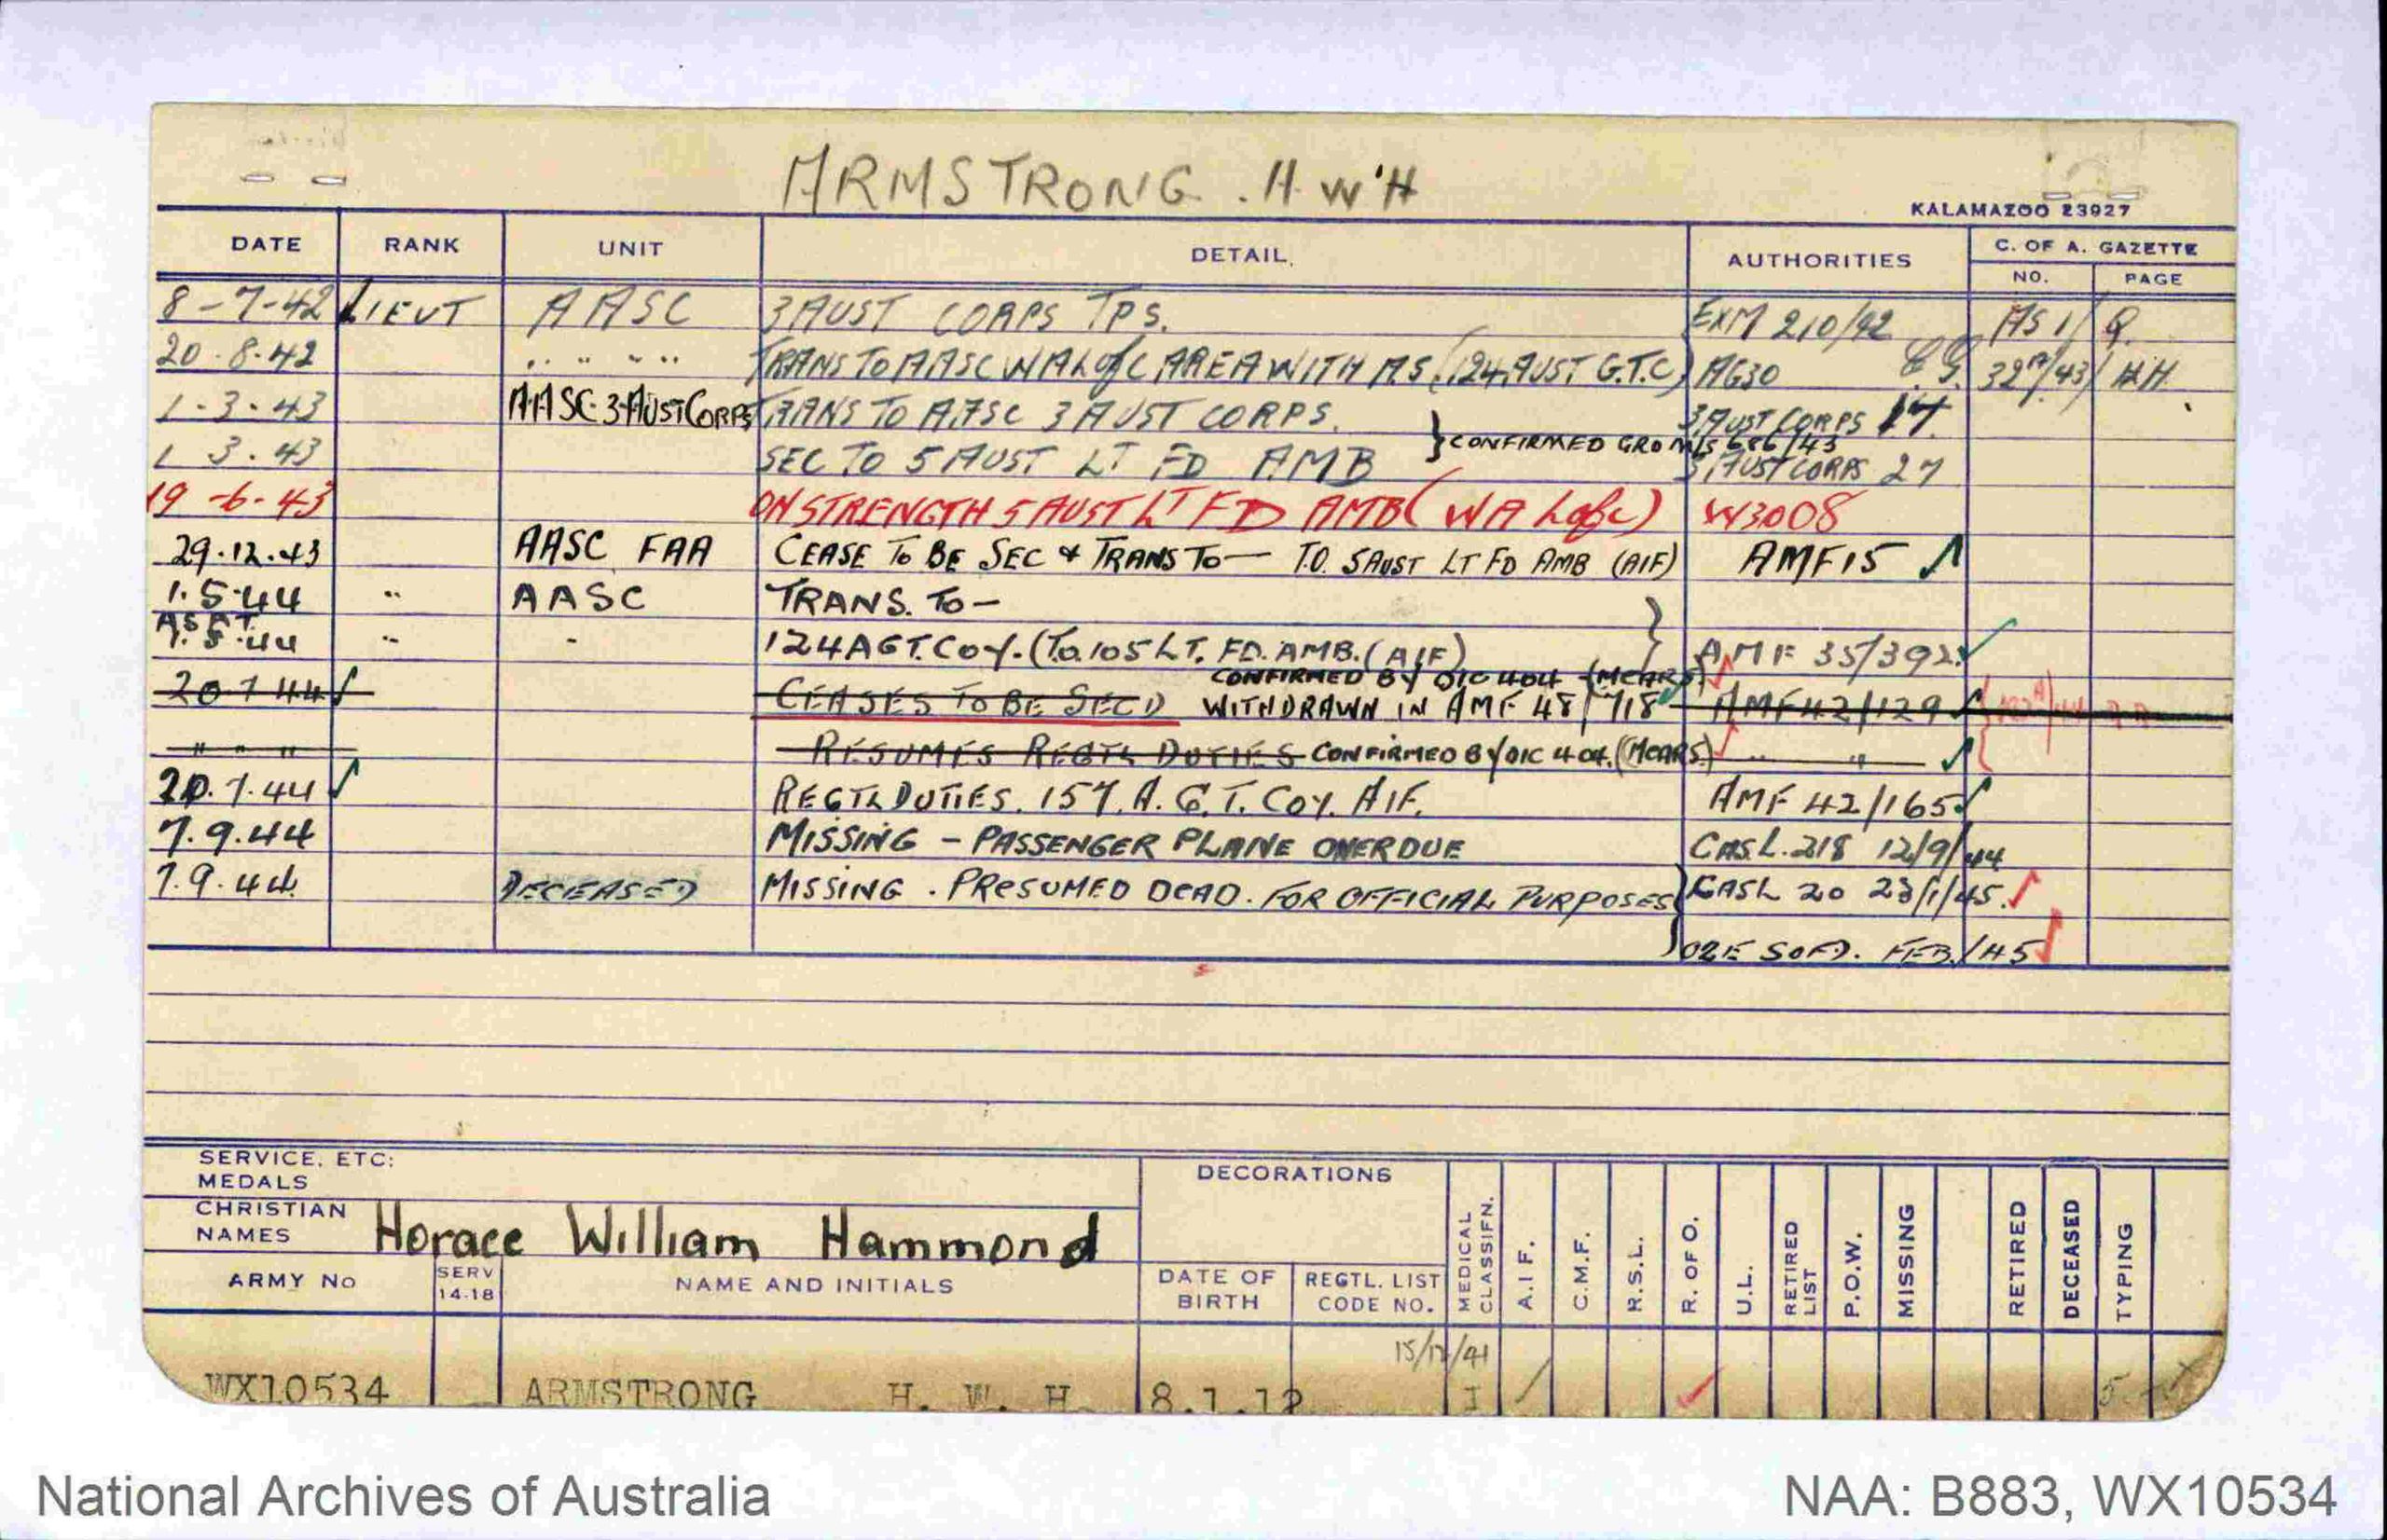 ARMSTRONG . H W H
KALAMAZOO 23927
DATE RANK UNIT DETAIL. AUTHORITIES C. OF A. GAZETTE
NO. PAGE
8-7-42 LIEUT AASC 3 AUST CORPS TPS. EXM 210/42 AS 1/ Q.
20.8.42 " " " " TRANS TO AASC WA L of C AREA WITH A.S (124 AUST G.T.C) AG30 32/43/ HH
1-3-43 AASC 3 AUST CORPS TRANS TO AASC 3 AUST CORPS. 3 AUST CORPS 17
} CONFIRMED GRO M/S 686/43
1 3.43 SEC TO 5 AUST LT FD AMB 3 AUST CORPS 27
19-6-43 ON STRENGTH 5 AUST LT FD AMB (WA L of C) W3008
29.12.43 AASC FAA CEASE TO BE SEC & TRANS TO — T.O. 5 AUST LT FD AMB (AIF) AMF15
1.5.44 " AASC TRANS. TO -
1.5.44 " - 124 AGT. COY. (T.O. 105 LT. FD. AMB. (AIF) AMF 35/392
CONFIRMED BY OIC 4 OH (MCARS)
20 7 44 CEASES TO BE SECD WITHDRAWN IN AMF 48/718 AMF 42/129
" " " RESUMES REGTL DUTIES CONFIRMED BY OIC 4 OH. (MCARS.) " "
20.7.44 REGTL DUTIES. 157. A.G.T. COY. AIF. AMF 42/165
7.9.44 MISSING - PASSENGER PLANE OVERDUE CAS.L. 218 12/9/44
7.9.44. DECEASED MISSING. PRESUMED DEAD. FOR OFFICIAL PURPOSES CASL 20 23/1/45.
02E SOFD. FEB./45
SERVICE, ETC:
MEDALS
DECORATIONS
CHRISTIAN NAMES Horace William Hammond
ARMY No SERV 14-18 NAME AND INITIALS DATE OF BIRTH REGTL. LIST CODE NO. MEDICAL CLASSIFN. A.I F. C.M.F. R.S.L. R. OF O. U.L. RETIRED LIST P.O.W. MISSING RETIRED DECEASED TYPING
15/12/41
WX10534 ARMSTRONG H. W. H. 8.1.12 I
National Archives of Australia NAA: B883, WX10534